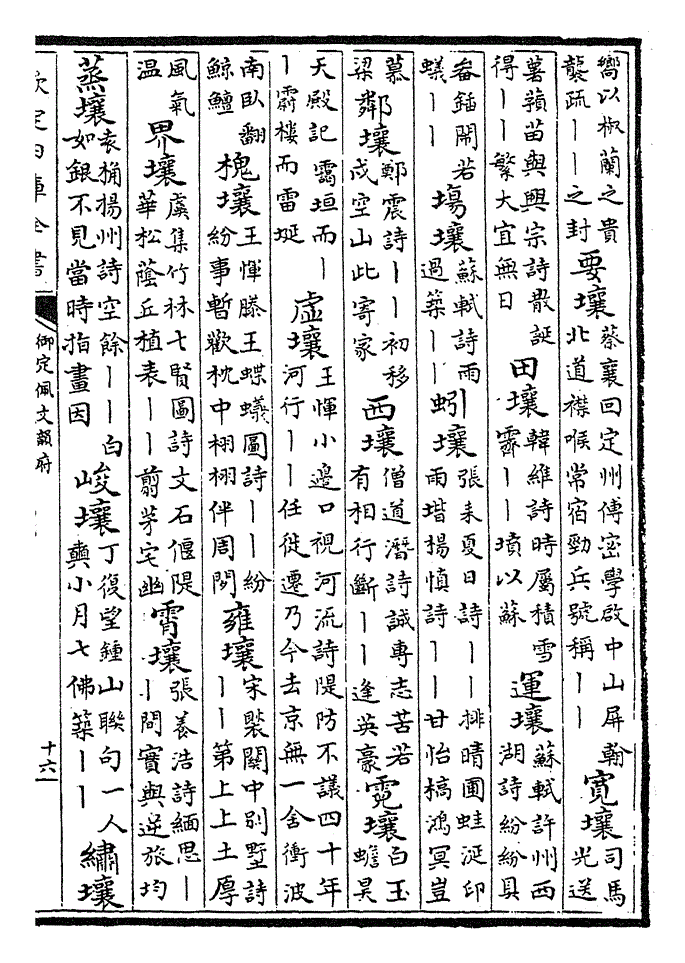 嚮以椒蘭之貴襲疏丨丨之封 要壤 蔡襄回定州傅密學啟中山屏翰北道襟喉常宿勁兵號稱丨丨 寛壤 司馬光送
薯蕷苗與興宗詩散誕得丨丨繁大宜無日 田壤 韓維詩時屬積雪霽丨丨墳以蘇 運壤 蘇軾許州西湖詩紛紛具
畚鍤鬧若蟻丨丨 塲壤 蘇軾詩雨過築丨丨 蚓壤 張耒夏日詩丨丨排晴圃蛙涎印雨堦楊慎詩丨丨甘怡槁鴻冥豈
慕梁 鄰壤 鄭震詩丨丨初移戍空山此寄家 西壤 僧道潛詩誠專志苦若有相行斷丨丨逢英豪 霓壤 白玉蟾昊
天殿記靄垣而丨丨霨樓而雷埏 虛壤 王惲小邊口視河流詩隄防不議四十年河行丨丨任徙遷乃今去京無一舍衝波
南臥翻鯨鱣 槐壤 王惲滕王蝶蟻圖詩丨丨紛紛事暫歡枕中栩栩伴周閒 雍壤 宋褧關中别墅詩丨丨第上上土厚
風氣温 界壤 虞集竹林七賢圖詩文石偃隄華松蔭丘植表丨丨翦茅宅幽 霄壤 張養浩詩緬思丨丨間實與逆旅均
蒸壤 袁桷揚州詩空餘丨丨白如銀不見當時指畫因 峻壤 丁復望鍾山聯句一人輿小月七佛築丨丨 繡壤
欽定四庫全書 御定佩文韻府 十六